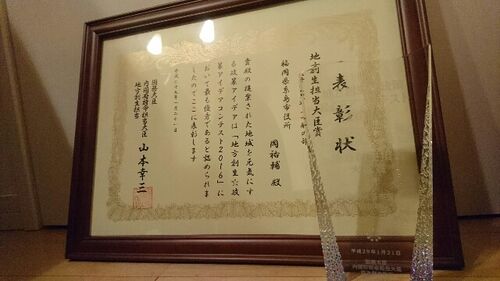 表彰状
地方創生担当大臣賞
福岡県糸島市役所
岡祐輔 殿
貴殿の提案された地域を元気にす
る政策アイデアは「地方創生☆政
策アイデアコンテスト2016」に
おいて最も優秀であると認められま
したのでここに表彰します
平成二十九年一月二十一日
国務大臣
内閣府特命担当大臣
地方創生担当
山本幸三
平成29年1月21日
国務大臣
内閣府特命担当大臣